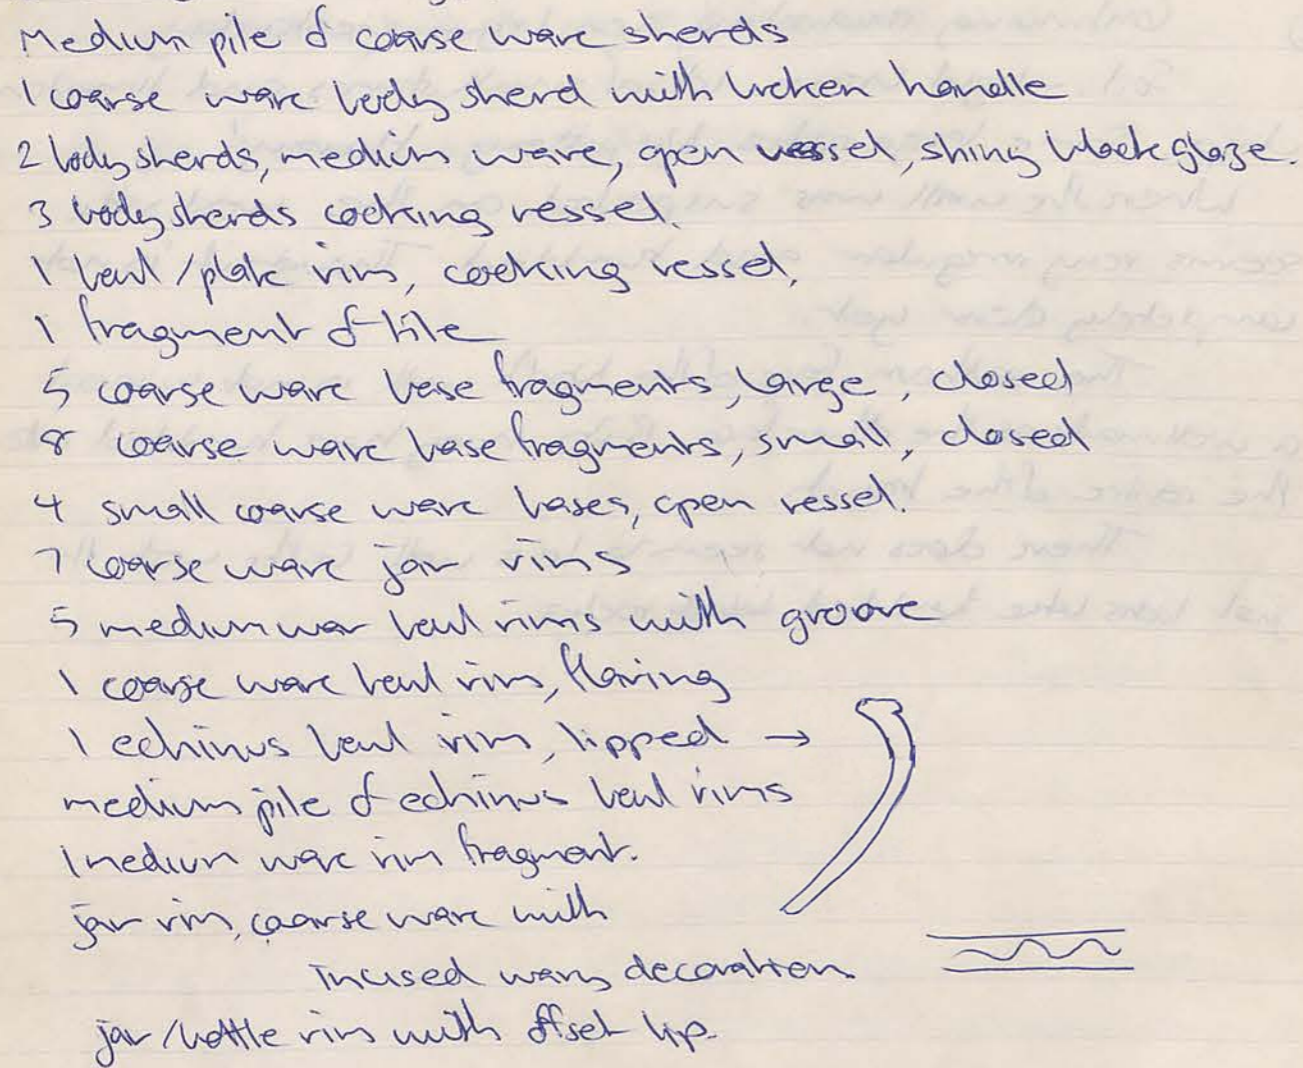 Medium pile of coarse ware sherds
1 coarse ware body sherd with broken handle
2 body sherds, medium ware, open vessel, shiny black glaze.
3 body sherds cooking vessel.
1 bowl/plate rim, cooking vessel,
1 fragment of tile
5 coarse ware base fragments, large, closed
8 coarse ware base fragments, small, closed
4 small coarse ware bases, open vessel.
7 coarse ware jar rims
5 medium war bowl rims with groove
1 coarse ware bowl rim, flaring
1 echinus bowl rim, lipped →
medium pile of echinus bowl rims
1 medium ware rim fragment.
jar rim, coarse ware with
Incised wavy decoration.
jar/bottle rim with offset lip.